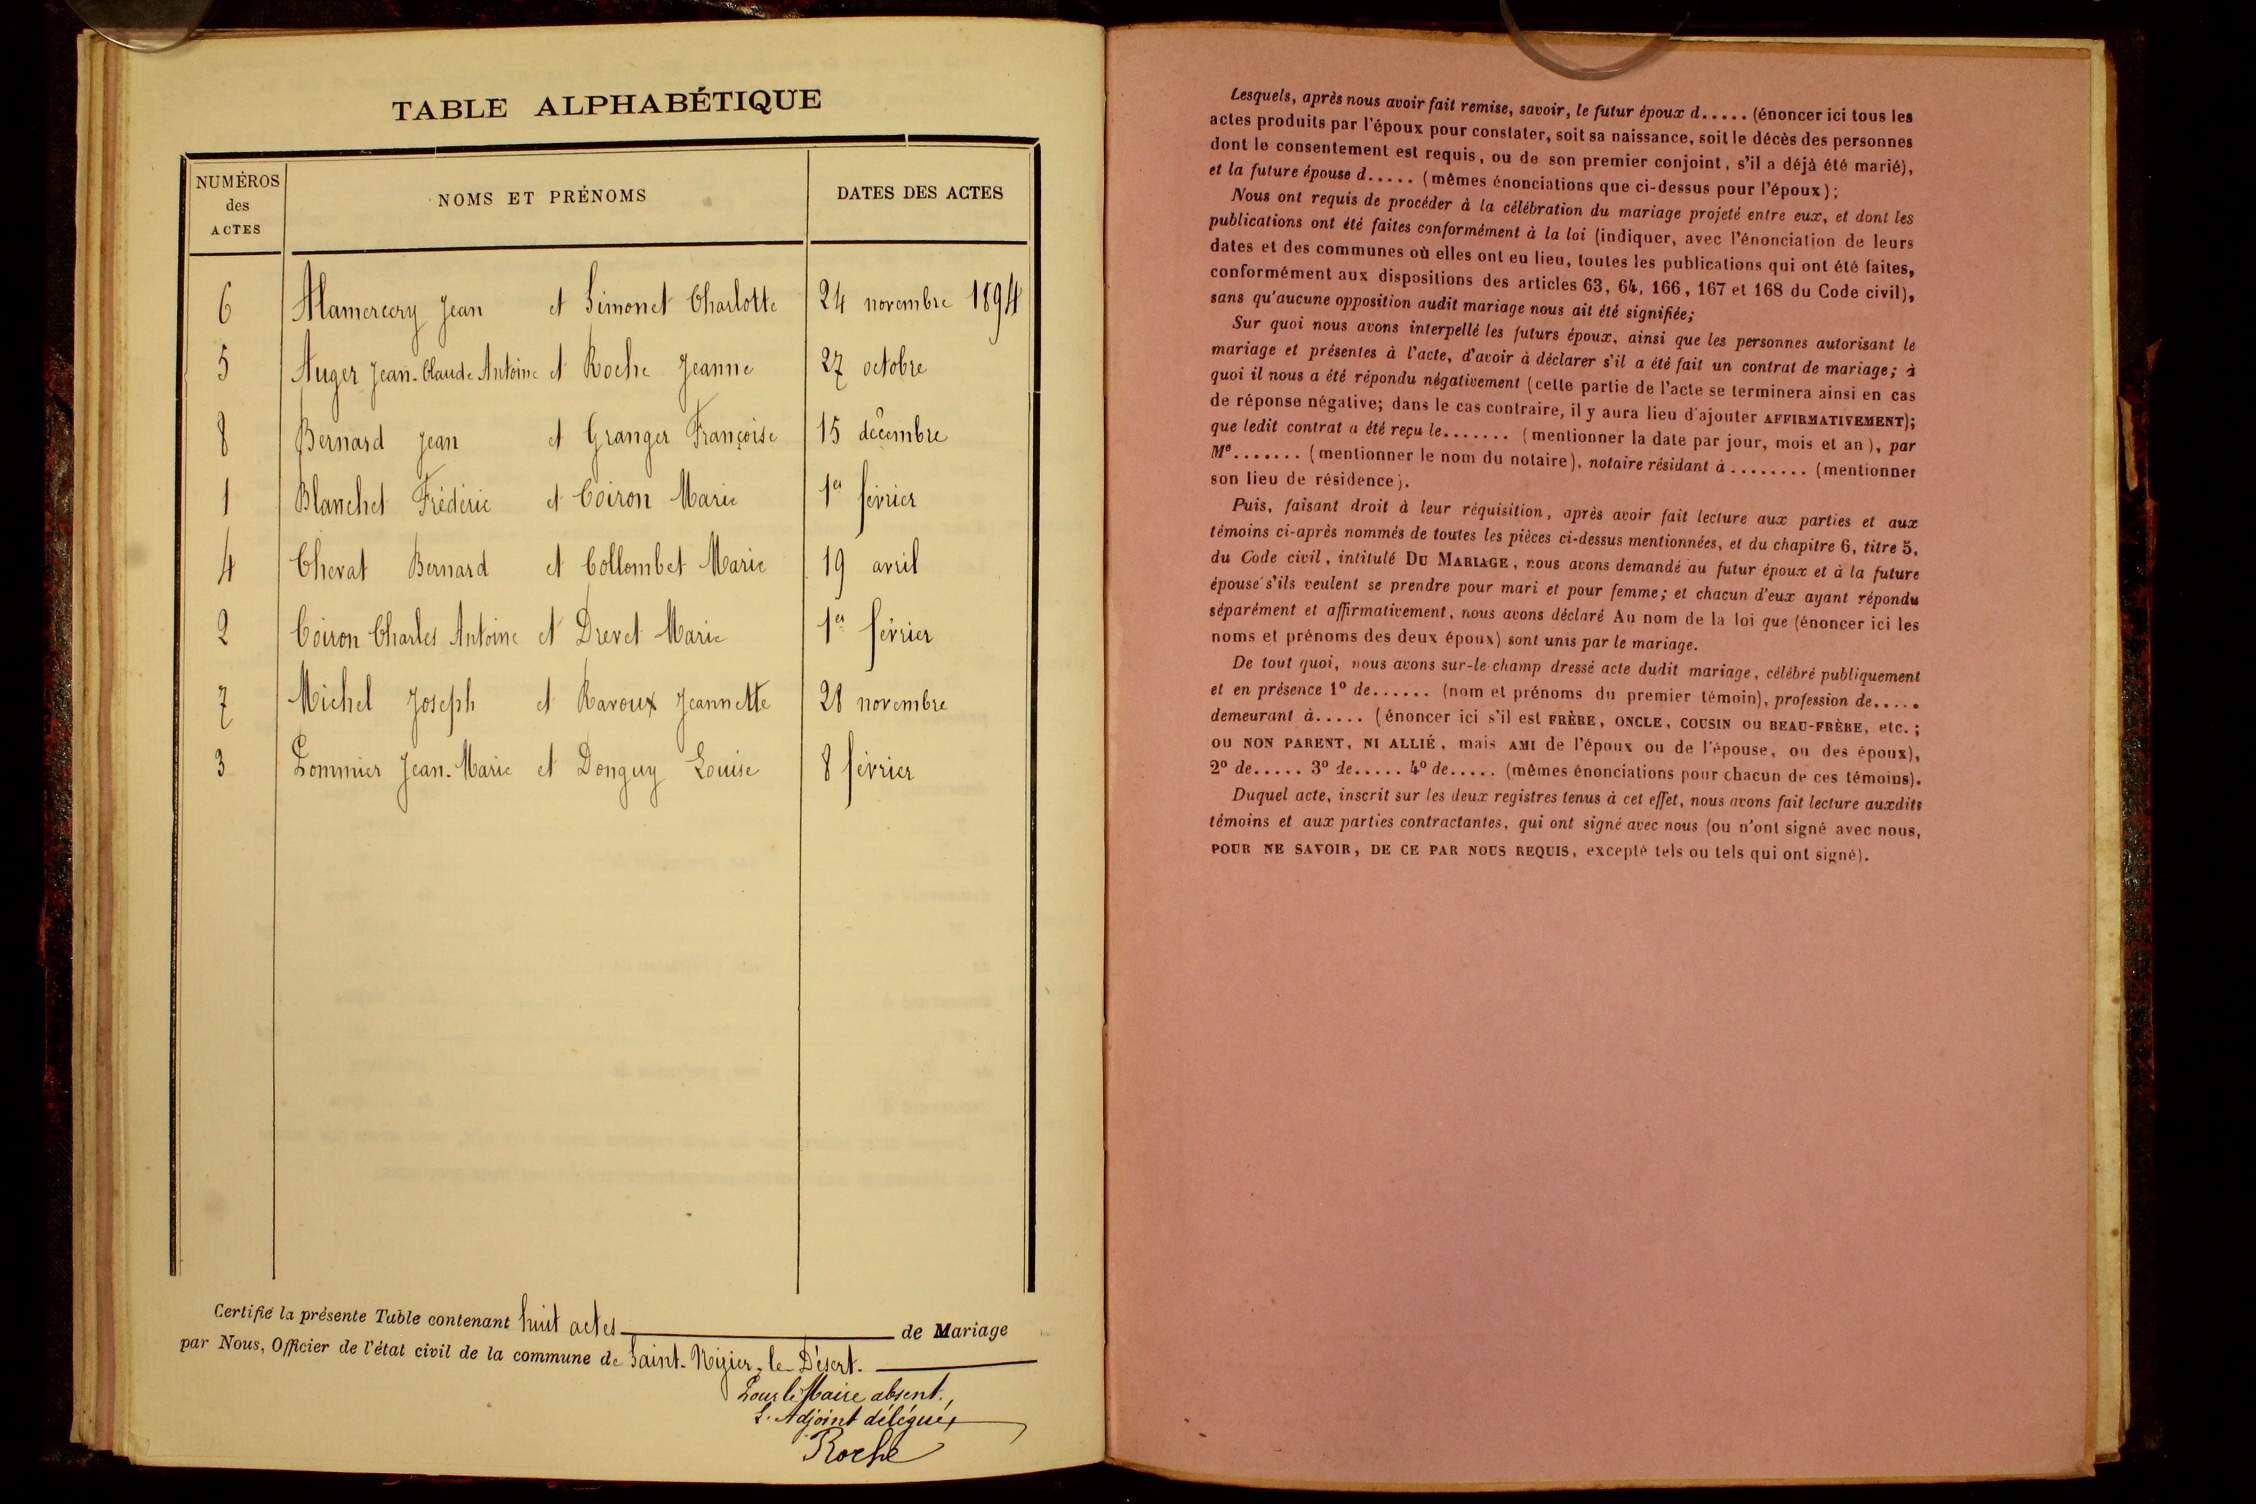 TABLE ALPHABÉTIQUE
NUMÉROS des ACTES
NOMS ET PRÉNOMS
DATES DES ACTES
6 Alamercery Jean et Simonet Charlotte 24 novembre 1894
5 Auger Jean-Claude Antoine et Roche Jeanne 27 octobre
8 Bernard Jean et Granger Françoise 15 décembre
1 Blanchet Frédéric et Coiron Marie 1er février
4 Chevat Bernard et Collombet Marie 19 avril
2 Coiron Charles Antoine et Drevet Marie 1er février
7 Michel Joseph et Ravoux Jeannette 28 novembre
3 Pommier Jean-Marie et Donguy Louise 8 février
Certifié la présente Table contenant huit actes de Mariage
par Nous, Officier de l'état civil de la commune de Saint-Nizier-le-Désert.
Pour le Maire absent,
L'Adjoint délégué,
Roche
Lesquels, après nous avoir fait remise, savoir, le futur époux d..... (énoncer ici tous les
actes produits par l'époux pour constater, soit sa naissance, soit le décès des personnes
dont le consentement est requis, ou de son premier conjoint, s'il a déjà été marié),
et la future épouse d..... (mêmes énonciations que ci-dessus pour l'époux);
Nous ont requis de procéder à la célébration du mariage projeté entre eux, et dont les
publications ont été faites conformément à la loi (indiquer, avec l'énonciation de leurs
dates et des communes où elles ont eu lieu, toutes les publications qui ont été faites,
conformément aux dispositions des articles 63, 64, 166, 167 et 168 du Code civil),
sans qu'aucune opposition audit mariage nous ait été signifiée;
Sur quoi nous avons interpellé les futurs époux, ainsi que les personnes autorisant le
mariage et présentes à l'acte, d'avoir à déclarer s'il a été fait un contrat de mariage; à
quoi il nous a été répondu négativement (cette partie de l'acte se terminera ainsi en cas
de réponse négative; dans le cas contraire, il y aura lieu d'ajouter AFFIRMATIVEMENT);
que ledit contrat a été reçu le....... (mentionner la date par jour, mois et an), par
Me....... (mentionner le nom du notaire), notaire résidant à ........ (mentionner
son lieu de résidence).
Puis, faisant droit à leur réquisition, après avoir fait lecture aux parties et aux
témoins ci-après nommés de toutes les pièces ci-dessus mentionnées, et du chapitre 6, titre 5,
du Code civil, intitulé DU MARIAGE, nous avons demandé au futur époux et à la future
épouse s'ils veulent se prendre pour mari et pour femme; et chacun d'eux ayant répondu
séparément et affirmativement, nous avons déclaré Au nom de la loi que (énoncer ici les
noms et prénoms des deux époux) sont unis par le mariage.
De tout quoi, nous avons sur-le-champ dressé acte dudit mariage, célébré publiquement
et en présence 1º de...... (nom et prénoms du premier témoin), profession de.....
demeurant à..... (énoncer ici s'il est FRÈRE, ONCLE, COUSIN OU BEAU-FRÈRE, etc.;
OU NON PARENT, NI ALLIÉ, mais AMI de l'époux ou de l'épouse, ou des époux),
2º de..... 3º de..... 4º de..... (mêmes énonciations pour chacun de ces témoins).
Duquel acte, inscrit sur les deux registres tenus à cet effet, nous avons fait lecture auxdits
témoins et aux parties contractantes, qui ont signé avec nous (ou n'ont signé avec nous,
POUR NE SAVOIR, DE CE PAR NOUS REQUIS, excepté tels ou tels qui ont signé).